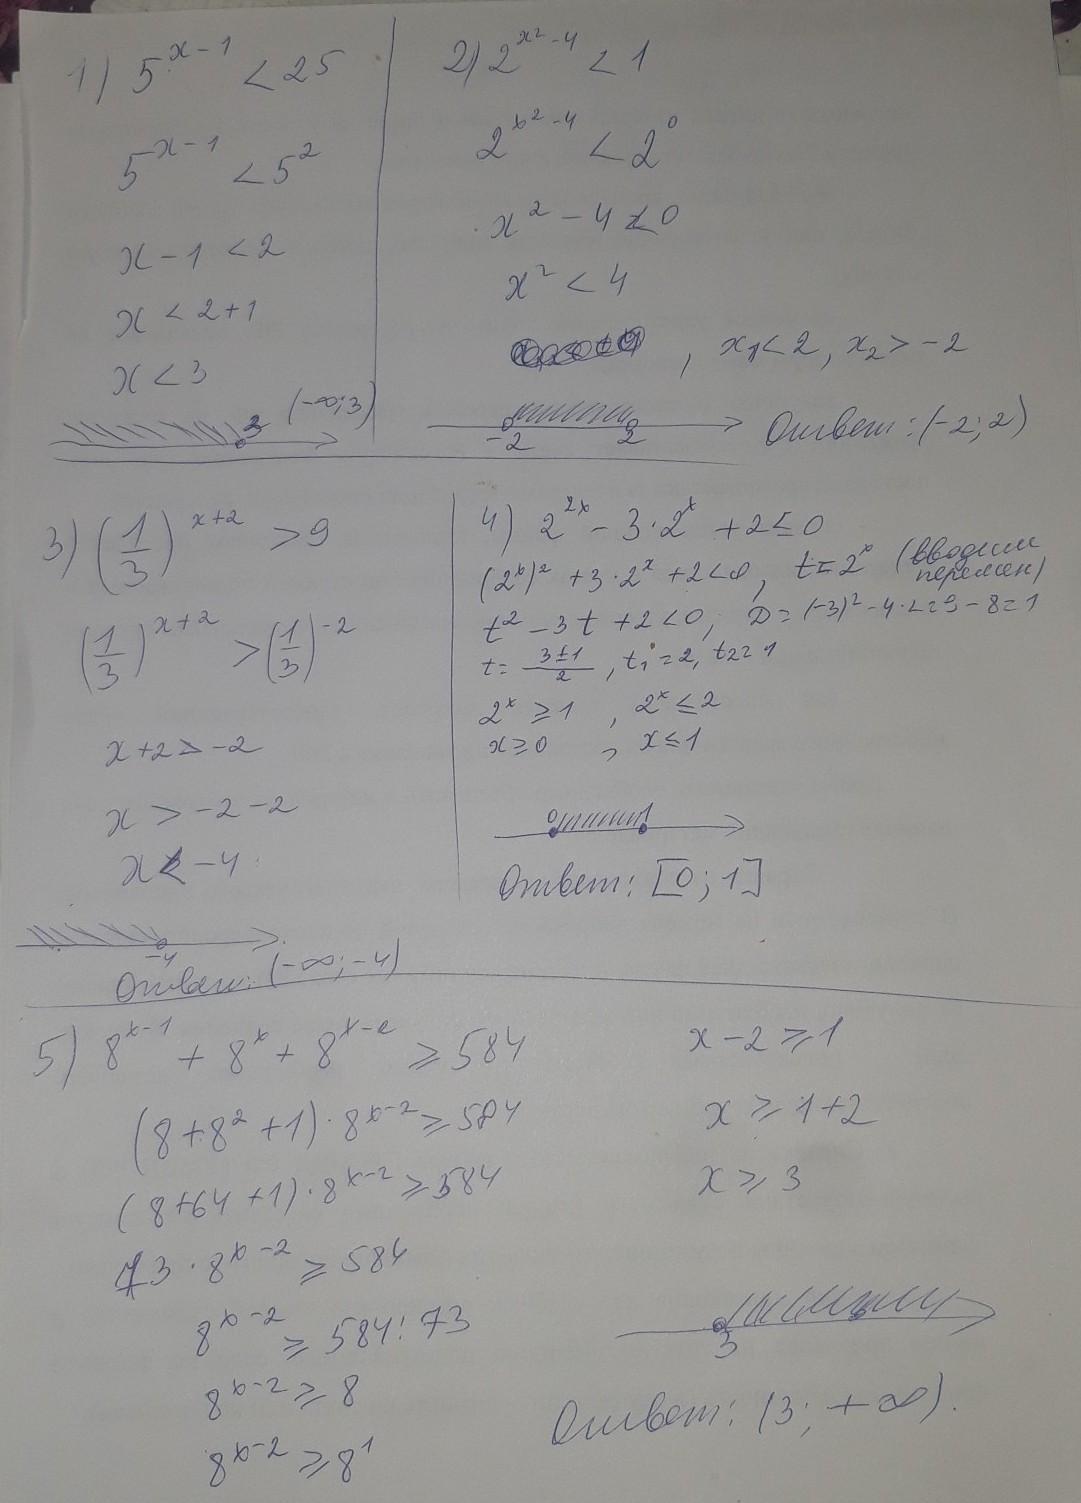 1) 5^{x-1} < 25
5^{x-1} < 5^2
x - 1 < 2
x < 2+1
x < 3
3 (-∞; 3)
2) 2^{x^2-4} < 1
2^{x^2-4} < 2^0
x^2 - 4 < 0
x^2 < 4
, x_1 < 2, x_2 > -2
-2 2 Ответ: (-2; 2)
3) (1/3)^{x+2} > 9
(1/3)^{x+2} > (1/3)^{-2}
x + 2 > -2
x > -2 - 2
x < -4
-4
Ответ: (-∞; -4)
4) 2^{2x} - 3·2^x + 2 ≤ 0
(2^x)^2 + 3·2^x + 2 < 0, t = 2^x (вводим перемен)
t^2 - 3t + 2 < 0; D = (-3)^2 - 4·2 = 9 - 8 = 1
t = (3±1)/2, t_1 = 2, t_2 = 1
2^x ≥ 1, 2^x ≤ 2
x ≥ 0, x ≤ 1
0 1
Ответ: [0; 1]
5) 8^{x-1} + 8^x + 8^{x-2} ≥ 584
(8 + 8^2 + 1)·8^{x-2} ≥ 584
(8 + 64 + 1)·8^{x-2} ≥ 584
73·8^{x-2} ≥ 584
8^{x-2} ≥ 584 : 73
8^{x-2} ≥ 8
8^{x-2} ≥ 8^1
x - 2 ≥ 1
x ≥ 1+2
x ≥ 3
3
Ответ: (3; +∞).